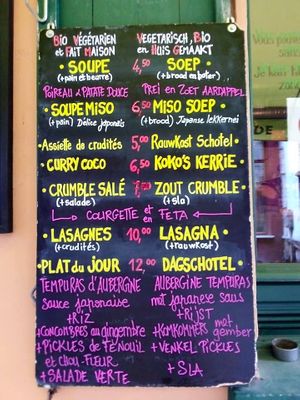 Bio Végétarien Vegetarisch, Bio
et Fait Maison en Huis Gemaakt
• SOUPE 4,50 SOEP •
(+pain et beurre) (+brood en boter)
Poireau & Patate Douce Prei en Zoet Aardappel
• SOUPE MISO 6,50 MISO SOEP •
(+pain) Délice japonais (+brood) Japanse lekkernei
• Assiette de crudités 5,00 Rauwkost Schotel •
• CURRY COCO 6,50 KOKO'S KERRIE •
• CRUMBLE SALÉ ZOUT CRUMBLE •
(+salade) (+sla)
COURGETTE et en FETA
• LASAGNES 10,00 LASAGNA •
(+crudités) (+rauwkost)
• PLAT DU JOUR 12,00 DAGSCHOTEL •
TEMPURAS D'AUBERGINE AUBERGINE TEMPURAS
sauce japonaise met japanese saus
+RIZ +RIJST
+CONCOMBRES au gingembre +KOMKOMMERS met gember
+PICKLES DE FENOUIL +VENKEL PICKLES
et CHOU-FLEUR
+SALADE VERTE +SLA
Vous pouvez